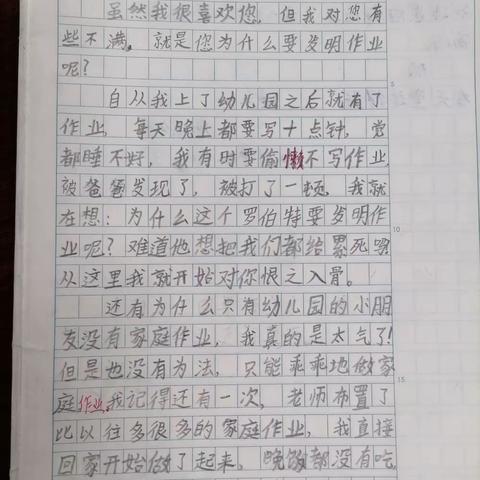 虽然我很喜欢您，但我对您有
些不满，就是您为什么要发明作业
呢？
自从我上了幼儿园之后就有了
作业，每天晚上都要写十点钟，觉
都睡不好，我有时要偷懒不写作业，
被爸爸发现了，被打了一顿，我就
在想：为什么这个罗伯特要发明作
业呢？难道他想把我们都给累死吗
从这里我就开始对你恨之入骨。
还有为什么只有幼儿园的小朋
友没有家庭作业，我真的是太气了！
但是也没有为法，只能乖乖地做家
庭作业。我记得还有一次，老师布置了
比以往多很多的家庭作业，我直接
回家开始做了起来。晚饭都没有吃，
5
10
15